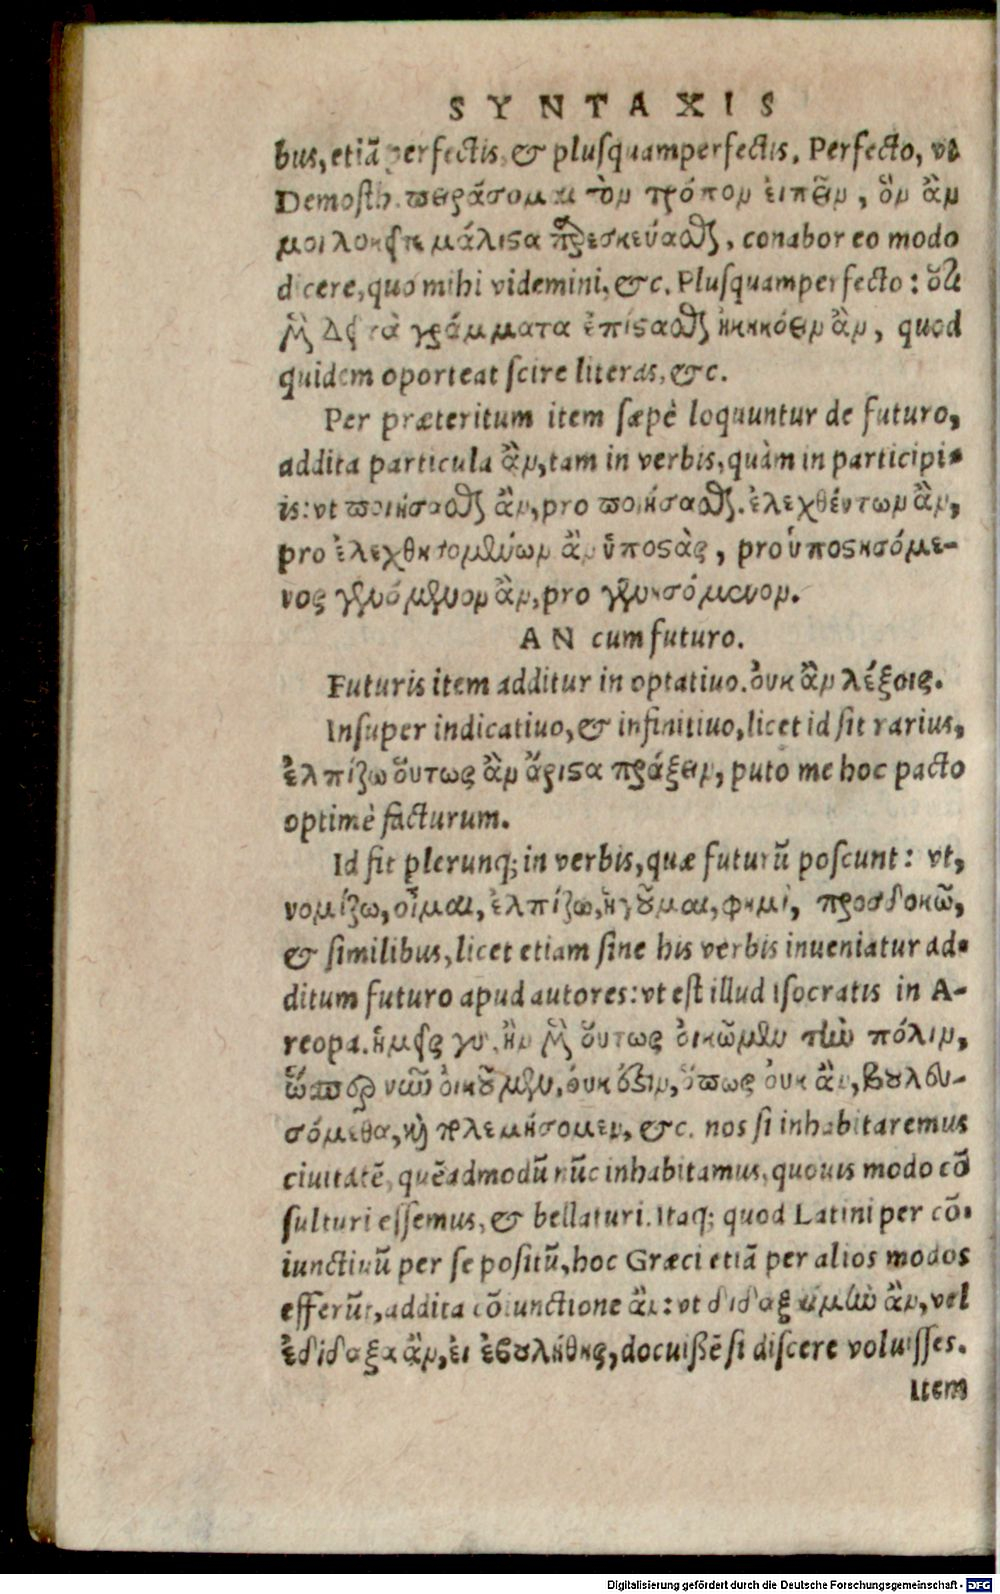 SYNTAXIS
bus, etiã perfectis, & plusquamperfectis. Perfecto, vt
Demosth. πειράσομαι τὸν τρόπον ἐιπεῖν, ὃν ἂν
μοι δοκεῖτε μάλιστα παρεσκευάσθαι, conabor eo modo
dicere, quo mihi videmini, &c. Plusquamperfecto: ὅτι
μὲν δεῖ τὰ γράμματα ἐπίστασθαι κηκόειν ἂν, quod
quidem oporteat scire literas, &c.
Per præteritum item sæpè loquuntur de futuro,
addita particula ἂν, tam in verbis, quàm in participi-
is: vt ποιήσασθαι ἂν, pro ποιήσασθαι. ἐλεχθέντων ἂν,
pro ἐλεχθησομένων ἂν ὑποστὰς, pro ὑποστησόμε-
νος γενόμενον ἂν, pro γενησόμενον.
AN cum futuro.
Futuris item additur in optatiuo. ὀυκ ἂν λέξοις.
Insuper indicatiuo, & infinitiuo, licet id sit rarius,
ἐλπίζω ὅυτως ἂν ἄριστα πράξειν, puto me hoc pacto
optimè facturum.
Id fit plerunq; in verbis, quæ futurũ poscunt: vt,
νομίζω, οἶμαι, ἐλπίζω, ἡγοῦμαι, φημὶ, προσδοκῶ,
& similibus, licet etiam sine his verbis inueniatur ad-
ditum futuro apud autores: vt est illud Isocratis in A-
reopa. ἡμεῖς γὰρ ἢν μὲν ὅυτως ὀικῶμεν τὴν πόλιν,
ὥσπερ νῦν ὀικοῦμεν, ὀυκ ἔστιν, ὅπως ὀυκ ἂν, βουλευ-
σόμεθα, καὶ πολεμήσομεν, &c. nos si inhabitaremus
ciuitatẽ, quẽadmodũ nũc inhabitamus, quouis modo cõ
sulturi essemus, & bellaturi. Itaq; quod Latini per cõ-
iunctiuũ per se positũ, hoc Græci etiã per alios modos
efferũt, addita cõiunctione ἂν: vt διδαξαίμην ἂν, vel
ἐδίδαξα ἂν, ἐι ἐβουλήθης, docuissẽ si discere voluisses.
Item
Digitalisierung gefördert durch die Deutsche Forschungsgemeinschaft - DFG